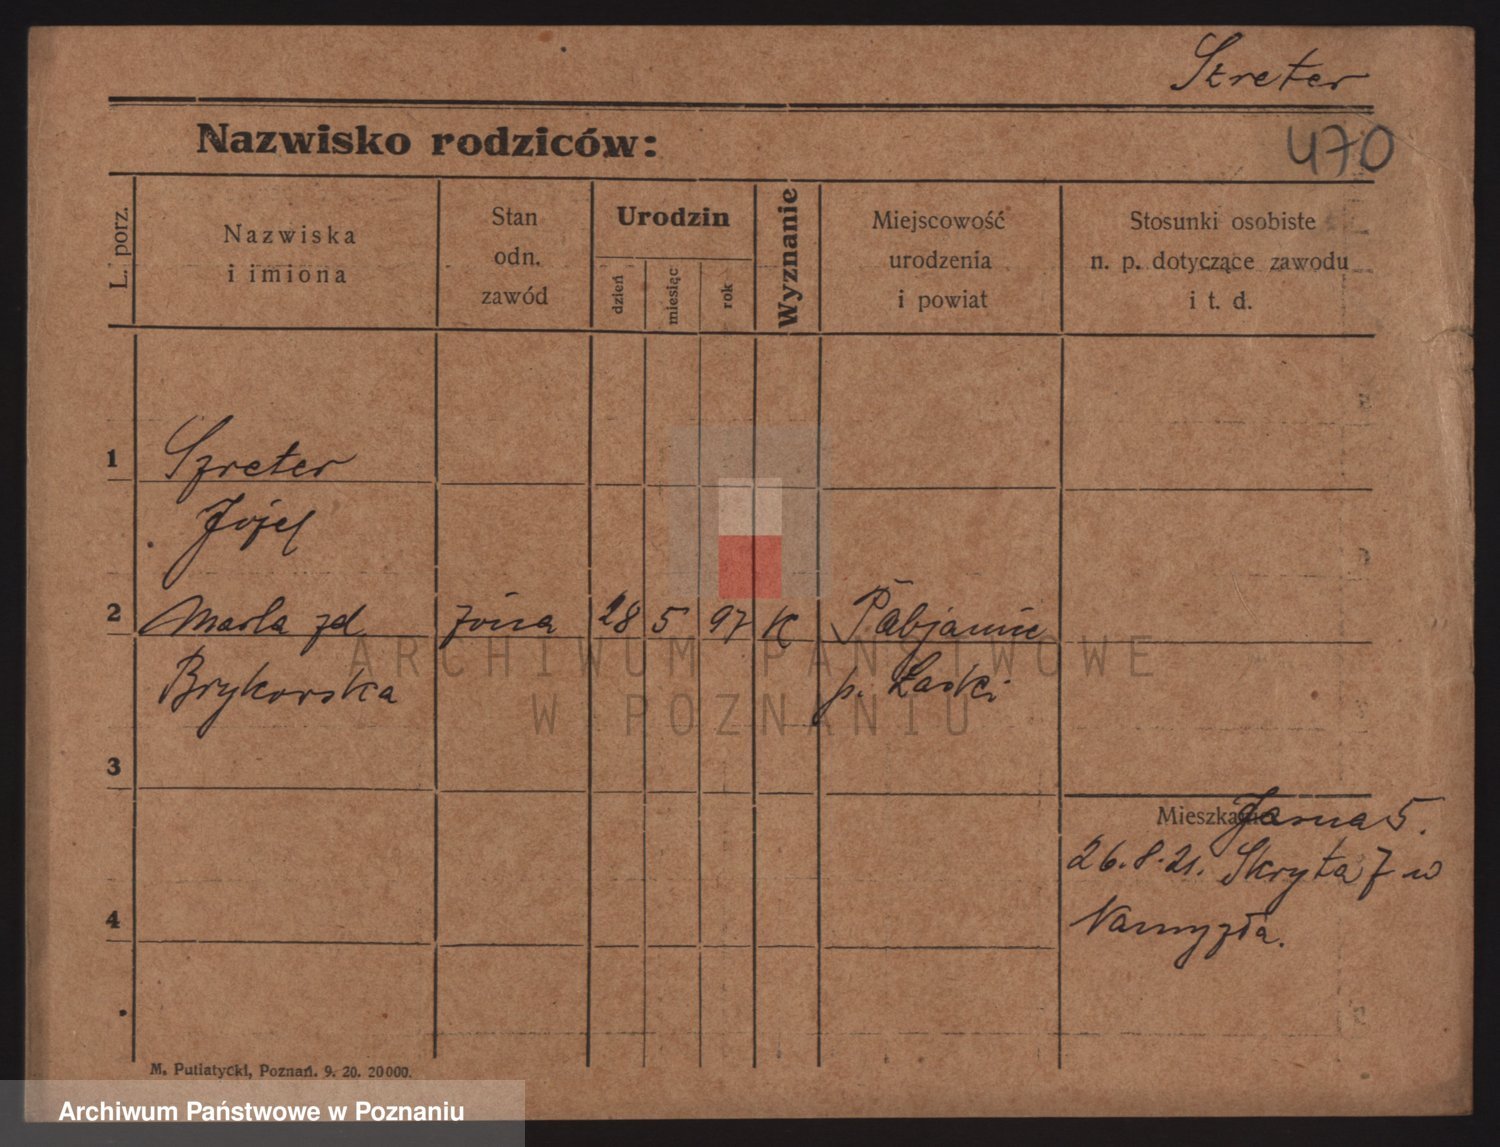 Szreter
470
Nazwisko rodziców:
L. porz.
Nazwiska
i imiona
Stan
odn.
zawód
Urodzin
dzień
miesiąc
rok
Wyznanie
Miejscowość
urodzenia
i powiat
Stosunki osobiste
n. p. dotyczące zawodu
i t. d.
1
Szreter
Józef
2
Marta zd
żona
28 5 97 K
Pabjanic
Brykorska
p. Łaski
3
Mieszkanie
Jasna 5.
26.8.21. Skryta 7 w
4
M. Putiatycki, Poznań. 9. 20. 20000.
ARCHIWUM PAŃSTWOWE
W POZNANIU
Archiwum Państwowe w Poznaniu